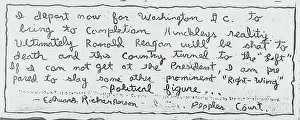 I depart now for Washington D.C. to
bring to completion Hinckleys reality.
Ultimately Ronald Reagan will be shot to
death and this Country turned to the "Left"
If I can not get at the President I am pre
pared to slay some other prominent "Right-Wing"
Political figure...
Edward Richardson
Peoples Court